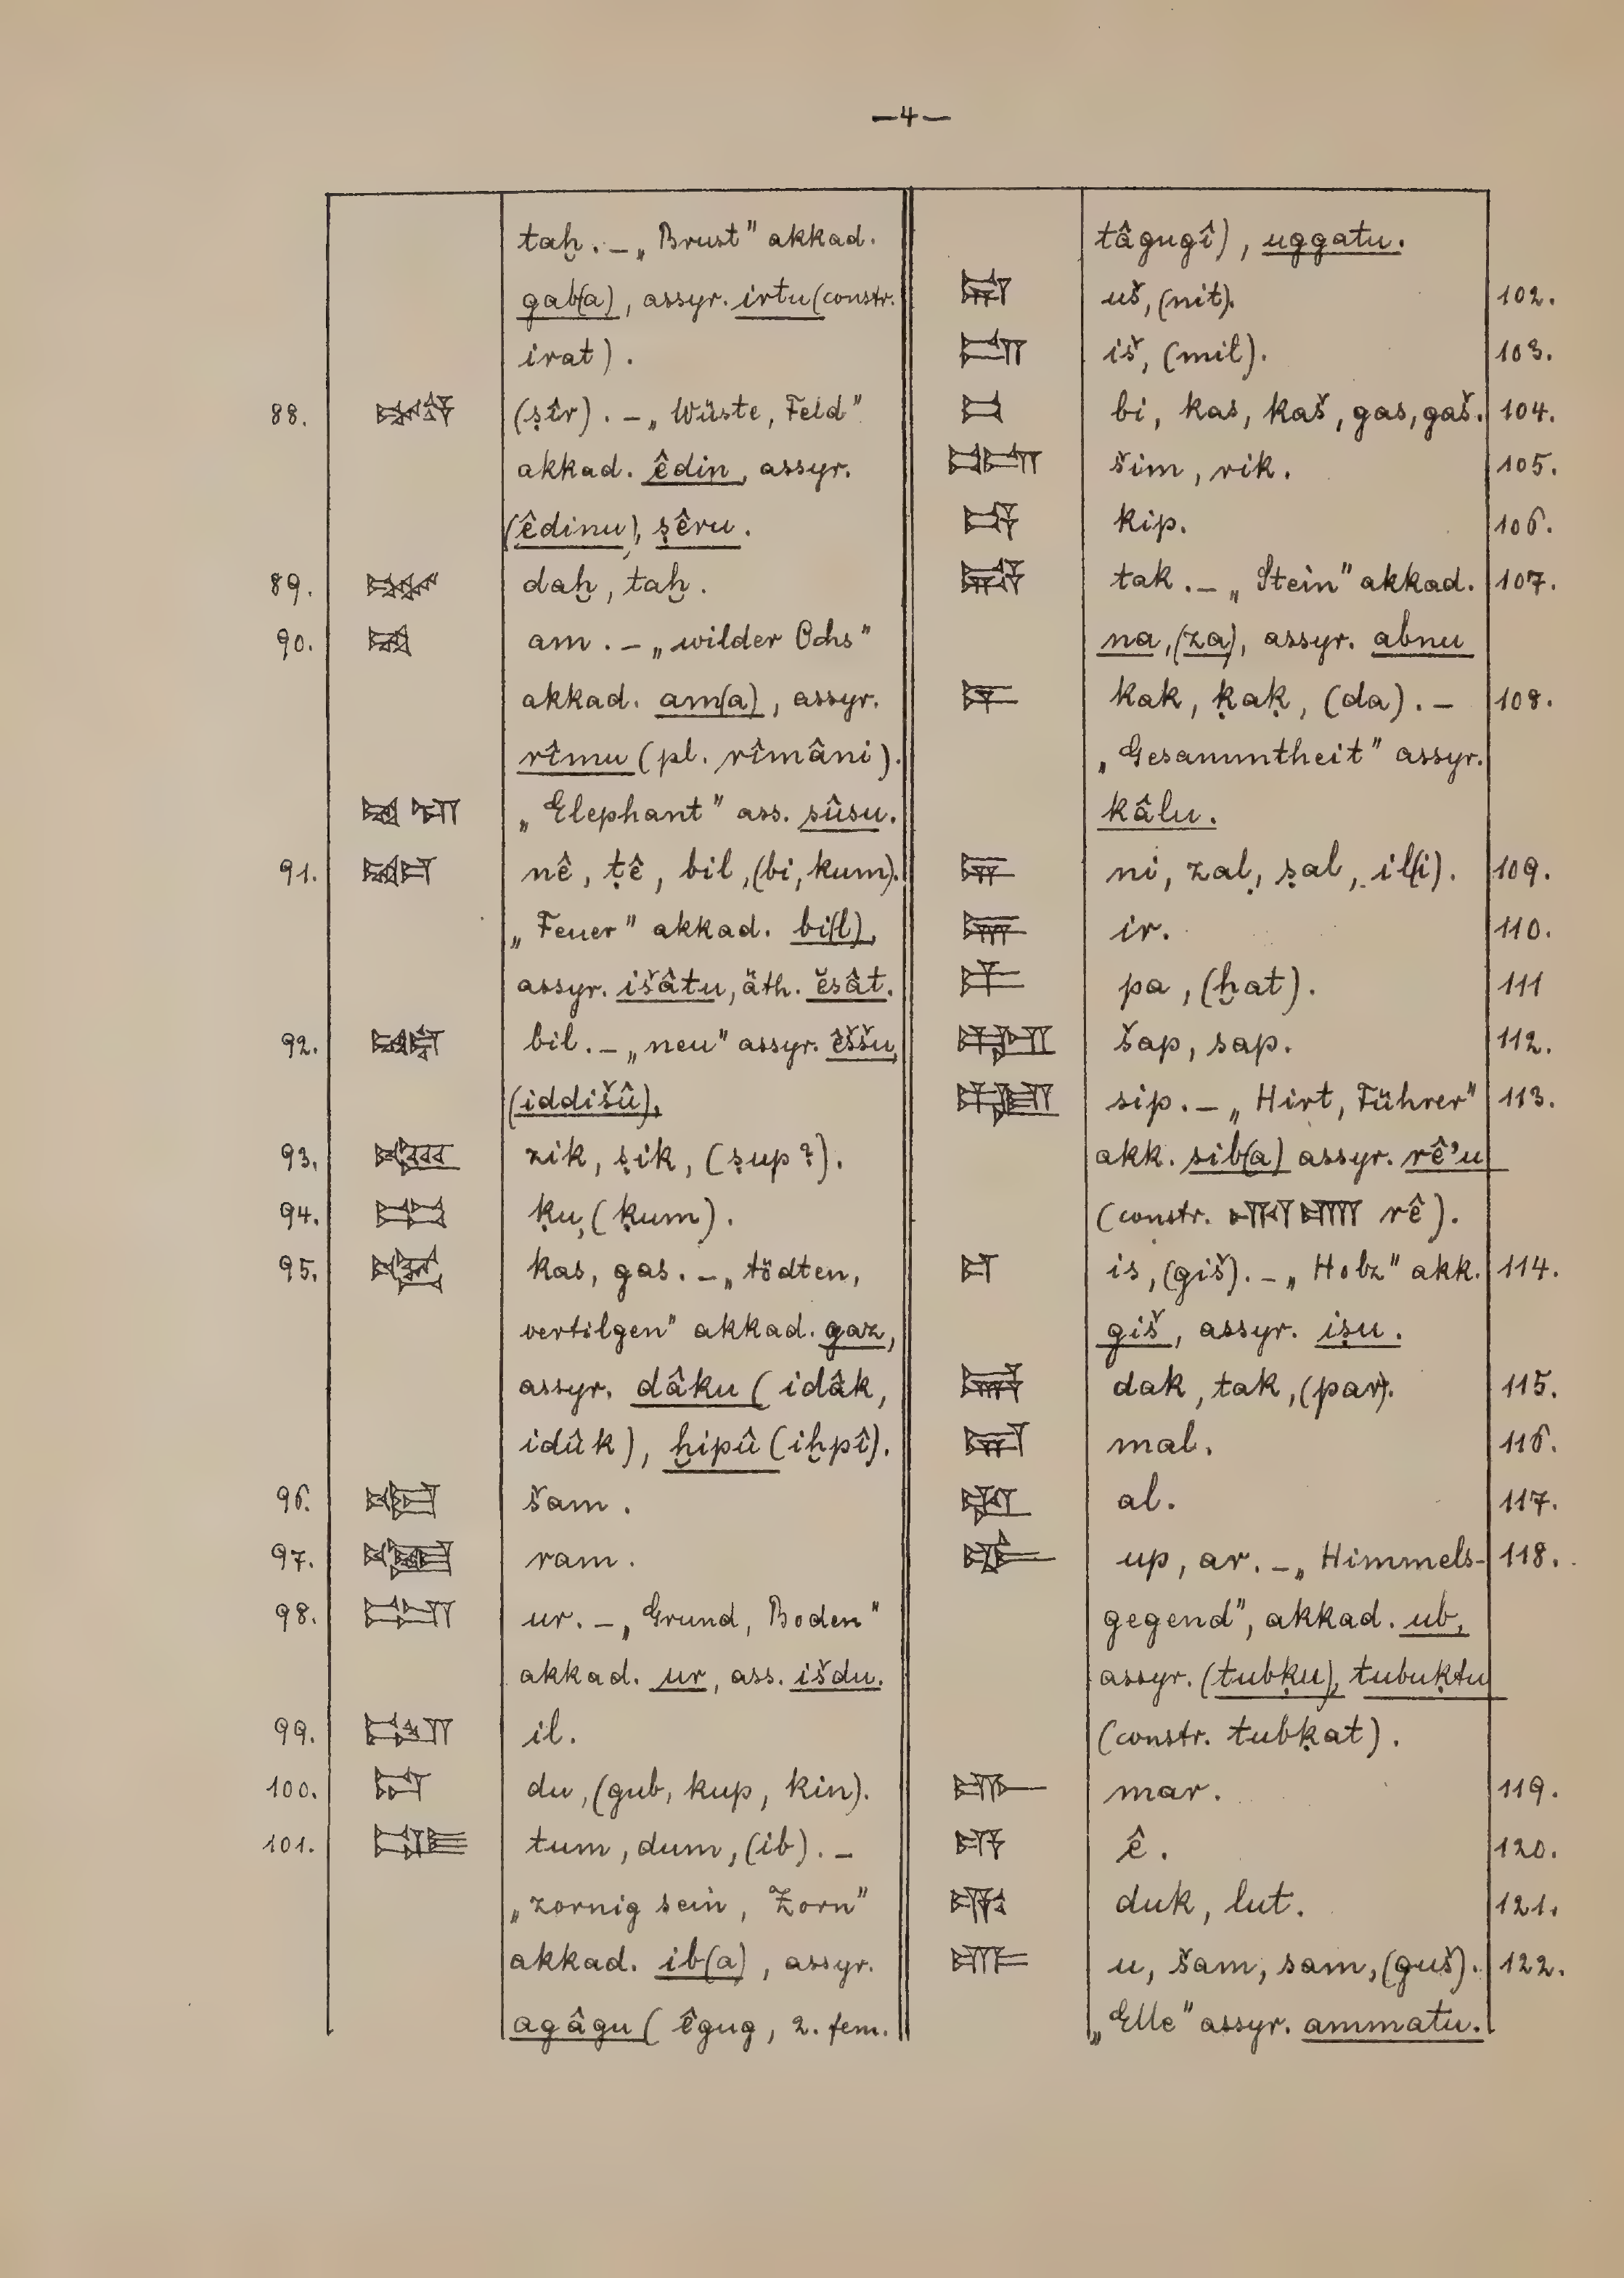 —4—
taḫ. – „Brust" akkad.
gab(a), assyr. irtu (constr.
irat).
88. (ṣîr). – „Wüste, Feld"
akkad. êdin, assyr.
(êdinu), ṣêru.
89. daḫ, taḫ.
90. am. – „wilder Ochs"
akkad. am(a), assyr.
rîmu (pl. rîmâni).
„Elephant" ass. sûsu.
91. nê, ṭê, bil, (bi, kum).
„Feuer" akkad. bi(l),
assyr. išâtu, äth. ĕsât.
92. bil. – „neu" assyr. êššu,
(iddišû),
93. zik, ṣik, (ṣup?).
94. ḳu, (ḳum).
95. kas, gas. – „tödten,
vertilgen" akkad. gaz,
assyr. dâku (idâk,
idûk), ḫipû (iḫpî).
96. šam.
97. ram.
98. ur. – „Grund, Boden"
akkad. ur, ass. išdu.
99. il.
100. du, (gub, kup, kin).
101. tum, dum, (ib). –
„zornig sein, Zorn"
akkad. ib(a), assyr.
agâgu (êgug, 2. fem.
tâgugî), uggatu.
uš, (nit). 102.
iš, (mil). 103.
bi, kas, kaš, gas, gaš. 104.
šim, rik. 105.
kip. 106.
tak. – „Stein" akkad. 107.
na, (za), assyr. abnu
kak, ḳaḳ, (da). – 108.
„Gesammtheit" assyr.
kâlu.
ni, zal, ṣal, il(i). 109.
ir. 110.
pa, (ḫat). 111
šap, sap. 112.
sip. – „Hirt, Führer" 113.
akk. sib(a) assyr. rê'u
(constr. rê).
is, (giš). – „Holz" akk. 114.
giš, assyr. iṣu.
dak, tak, (par). 115.
mal. 116.
al. 117.
up, ar. – „Himmels- 118.
gegend", akkad. ub,
assyr. (tubḳu), tubuḳtu
(constr. tubḳat).
mar. 119.
ê. 120.
duk, lut. 121.
u, šam, sam, (guš). 122.
„Elle" assyr. ammatu.